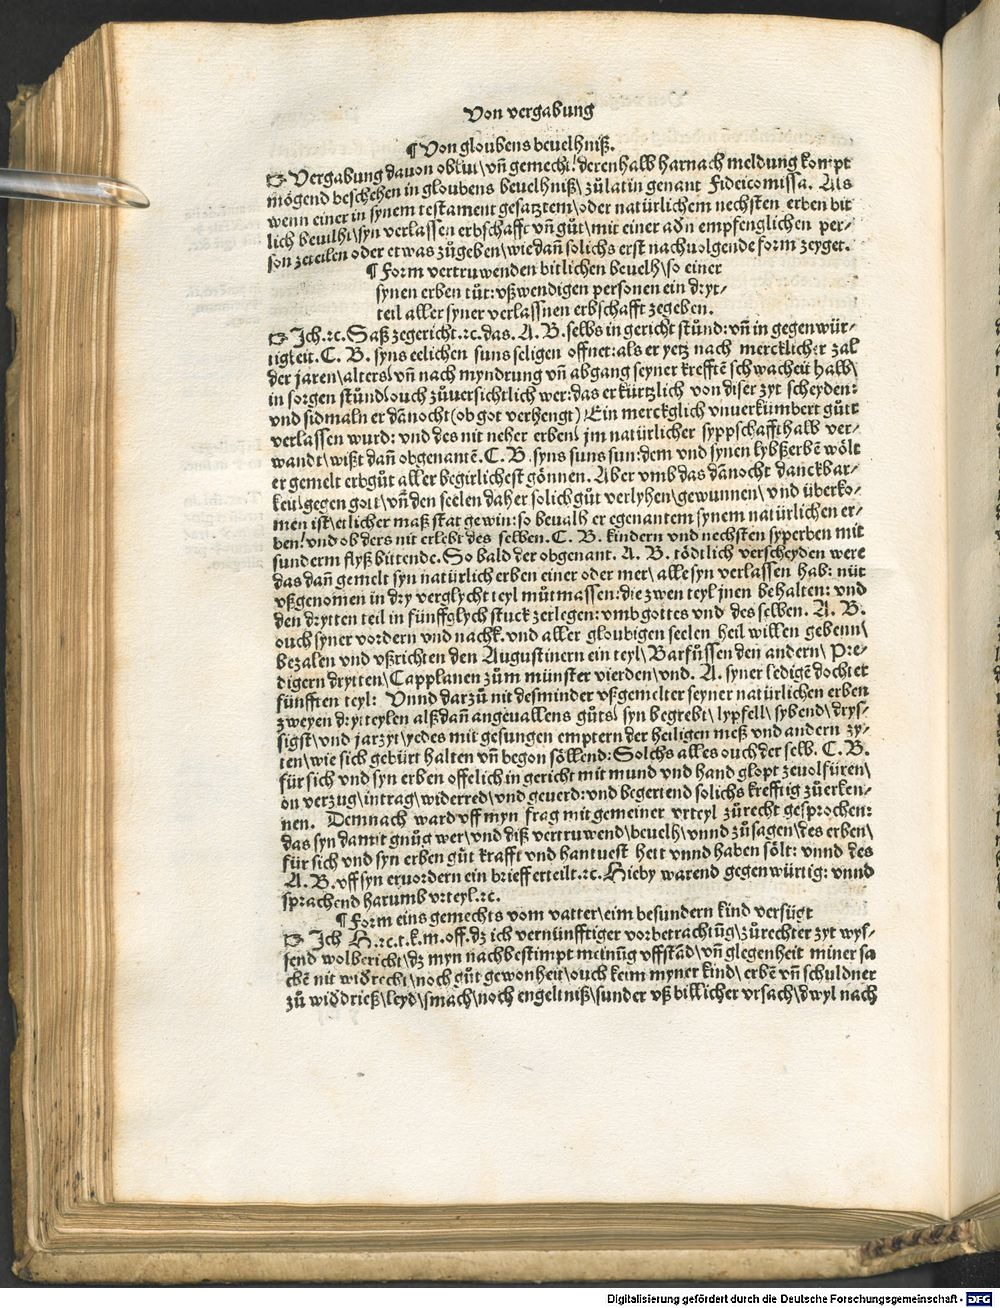 Von vergabung
¶ Von gloubens beuelhniß.
☞ Vergabung dauon oblut\ vñ gemecht! derenhalb harnach meldung kompt
mögend beschehen in gloubens beuelhniß\ zů latin genant Fideicomissa. Als
wenn einer in synem testament gesatztem\ oder natürlichem nechsten erben bit
lich beuilht\ syn verlassen erbschafft vñ gůt\ mit einer adn empfenglichen per-
son zeteilen oder etwas zůgeben\ wie dañ solichs erst nachuolgende form zeyget.
¶ Form vertruwenden bitlichen beuelh\ so einer
synen erben tůt: vßwendigen personen ein dryt-
teil aller syner verlassnen erbschafft zegeben.
☞ Ich.ꝛc. Saß zegericht.ꝛc. das. A. B. selbs in gericht stůnd: vñ in gegenwür-
tigkeit. C. B. syns eelichen suns seligen offnet: als er yetz nach mercklicher zal
der jaren\ alters\ vñ nach myndrung vñ abgang seyner krefftẽ schwacheit halb\
in sorgen stůnd\ ouch zůuersichtlich wer: das er kürtzlich von diser zyt scheyden:
vnd sidmaln er dãnocht (ob got verhengt) Ein merckglich vnuerkümbert gůtt
verlassen wurd: vnd des nit neher erben\ jm natürlicher sypschafft halb ver-
wandt\ wißt dañ obgenantẽ. C. B. syns suns sun: dem vnd synen lybßerbẽ wölt
er gemelt erbgůt aller begirlichest gönnen. Aber vmb das dãnocht danckbar-
keit\ gegen gott\ vñ den seelen daher solich gůt verlyhen\ gewunnen\ vnd überko-
men ist\ etlicher maß stat gewin: so beualh er egenantem synem natürlichen er-
ben! vnd ob ders nit erlebt des selben. C. B. kindern vnd nechsten syperben mit
sunderm flyß bittende. So bald der obgenant. A. B. tödtlich verscheyden were
das dañ gemelt syn natürlich erben einer oder mer\ alle syn verlassen hab: nüt
vßgenomen in dry verglycht teyl můtmassen: die zwen teyl jnen behalten: vnd
den drytten teil in fünff glych stuck zerlegen: vmb gottes vnd des selben. A. B.
ouch syner vordern vnd nachk. vnd aller gloubigen seelen heil willen gebenn\
bezalen vnd vßrichten den Augustinern ein teyl\ Barfůssen den andern\ Pre-
digern drytten\ Capplanen zům münster vierden\ vnd. A. syner ledigẽ dochter
fünfften teyl: Vnnd darzů nit desminder vßgemelter seyner natürlichen erben
zweyen dryttteylen alß dañ angeuallens gůts\ syn begrebt\ lypfell\ sybend\ drys-
sigst\ vnd jarzyt\ yedes mit gesungen emptern der heiligen meß vnd andern zy-
ten\ wie sich gebürt halten vñ begon söllend: Solchs alles ouch der selb. C. B.
für sich vnd syn erben offelich in gericht mit mund vnd hand glopt zeuolfüren\
on verzug\ intrag\ widerred\ vnd geuerd: vnd begertend solichs krefftig zůerken-
nen. Demnach ward vff myn frag mit gemeiner vrteyl zůrecht gesprochen:
das syn damit gnůg wer\ vnd diß vertruwend\ beuelh\ vnnd zůsagen\ des erben\
für sich vnd syn erben gůt krafft vnd hantuest hett vnnd haben sölt: vnnd des
A. B. vff syn eruordern ein brieff erteilt.ꝛc. Hieby warend gegenwürtig: vnnd
sprachend harumb vrteyl.ꝛc.
¶ Form eins gemechts vom vatter\ eim besundern kind versügt
☞ Ich H.ꝛc.t.k.m.off. dz ich vernünfftiger vorbetrachtũg\ zů rechter zyt wys-
send wolbericht\ dz myn nachbestimpt meinũg vffstãd\ vñ glegenheit miner sa
chẽ nit widrecht\ noch gůt gewonheit\ ouch keim myner kind\ erbẽ vñ schuldner
zů widdrieß\ leyd\ smach\ noch engeltniß\ sunder vß billicher vrsach\ dwyl nach
Digitalisierung gefördert durch die Deutsche Forschungsgemeinschaft - DFG